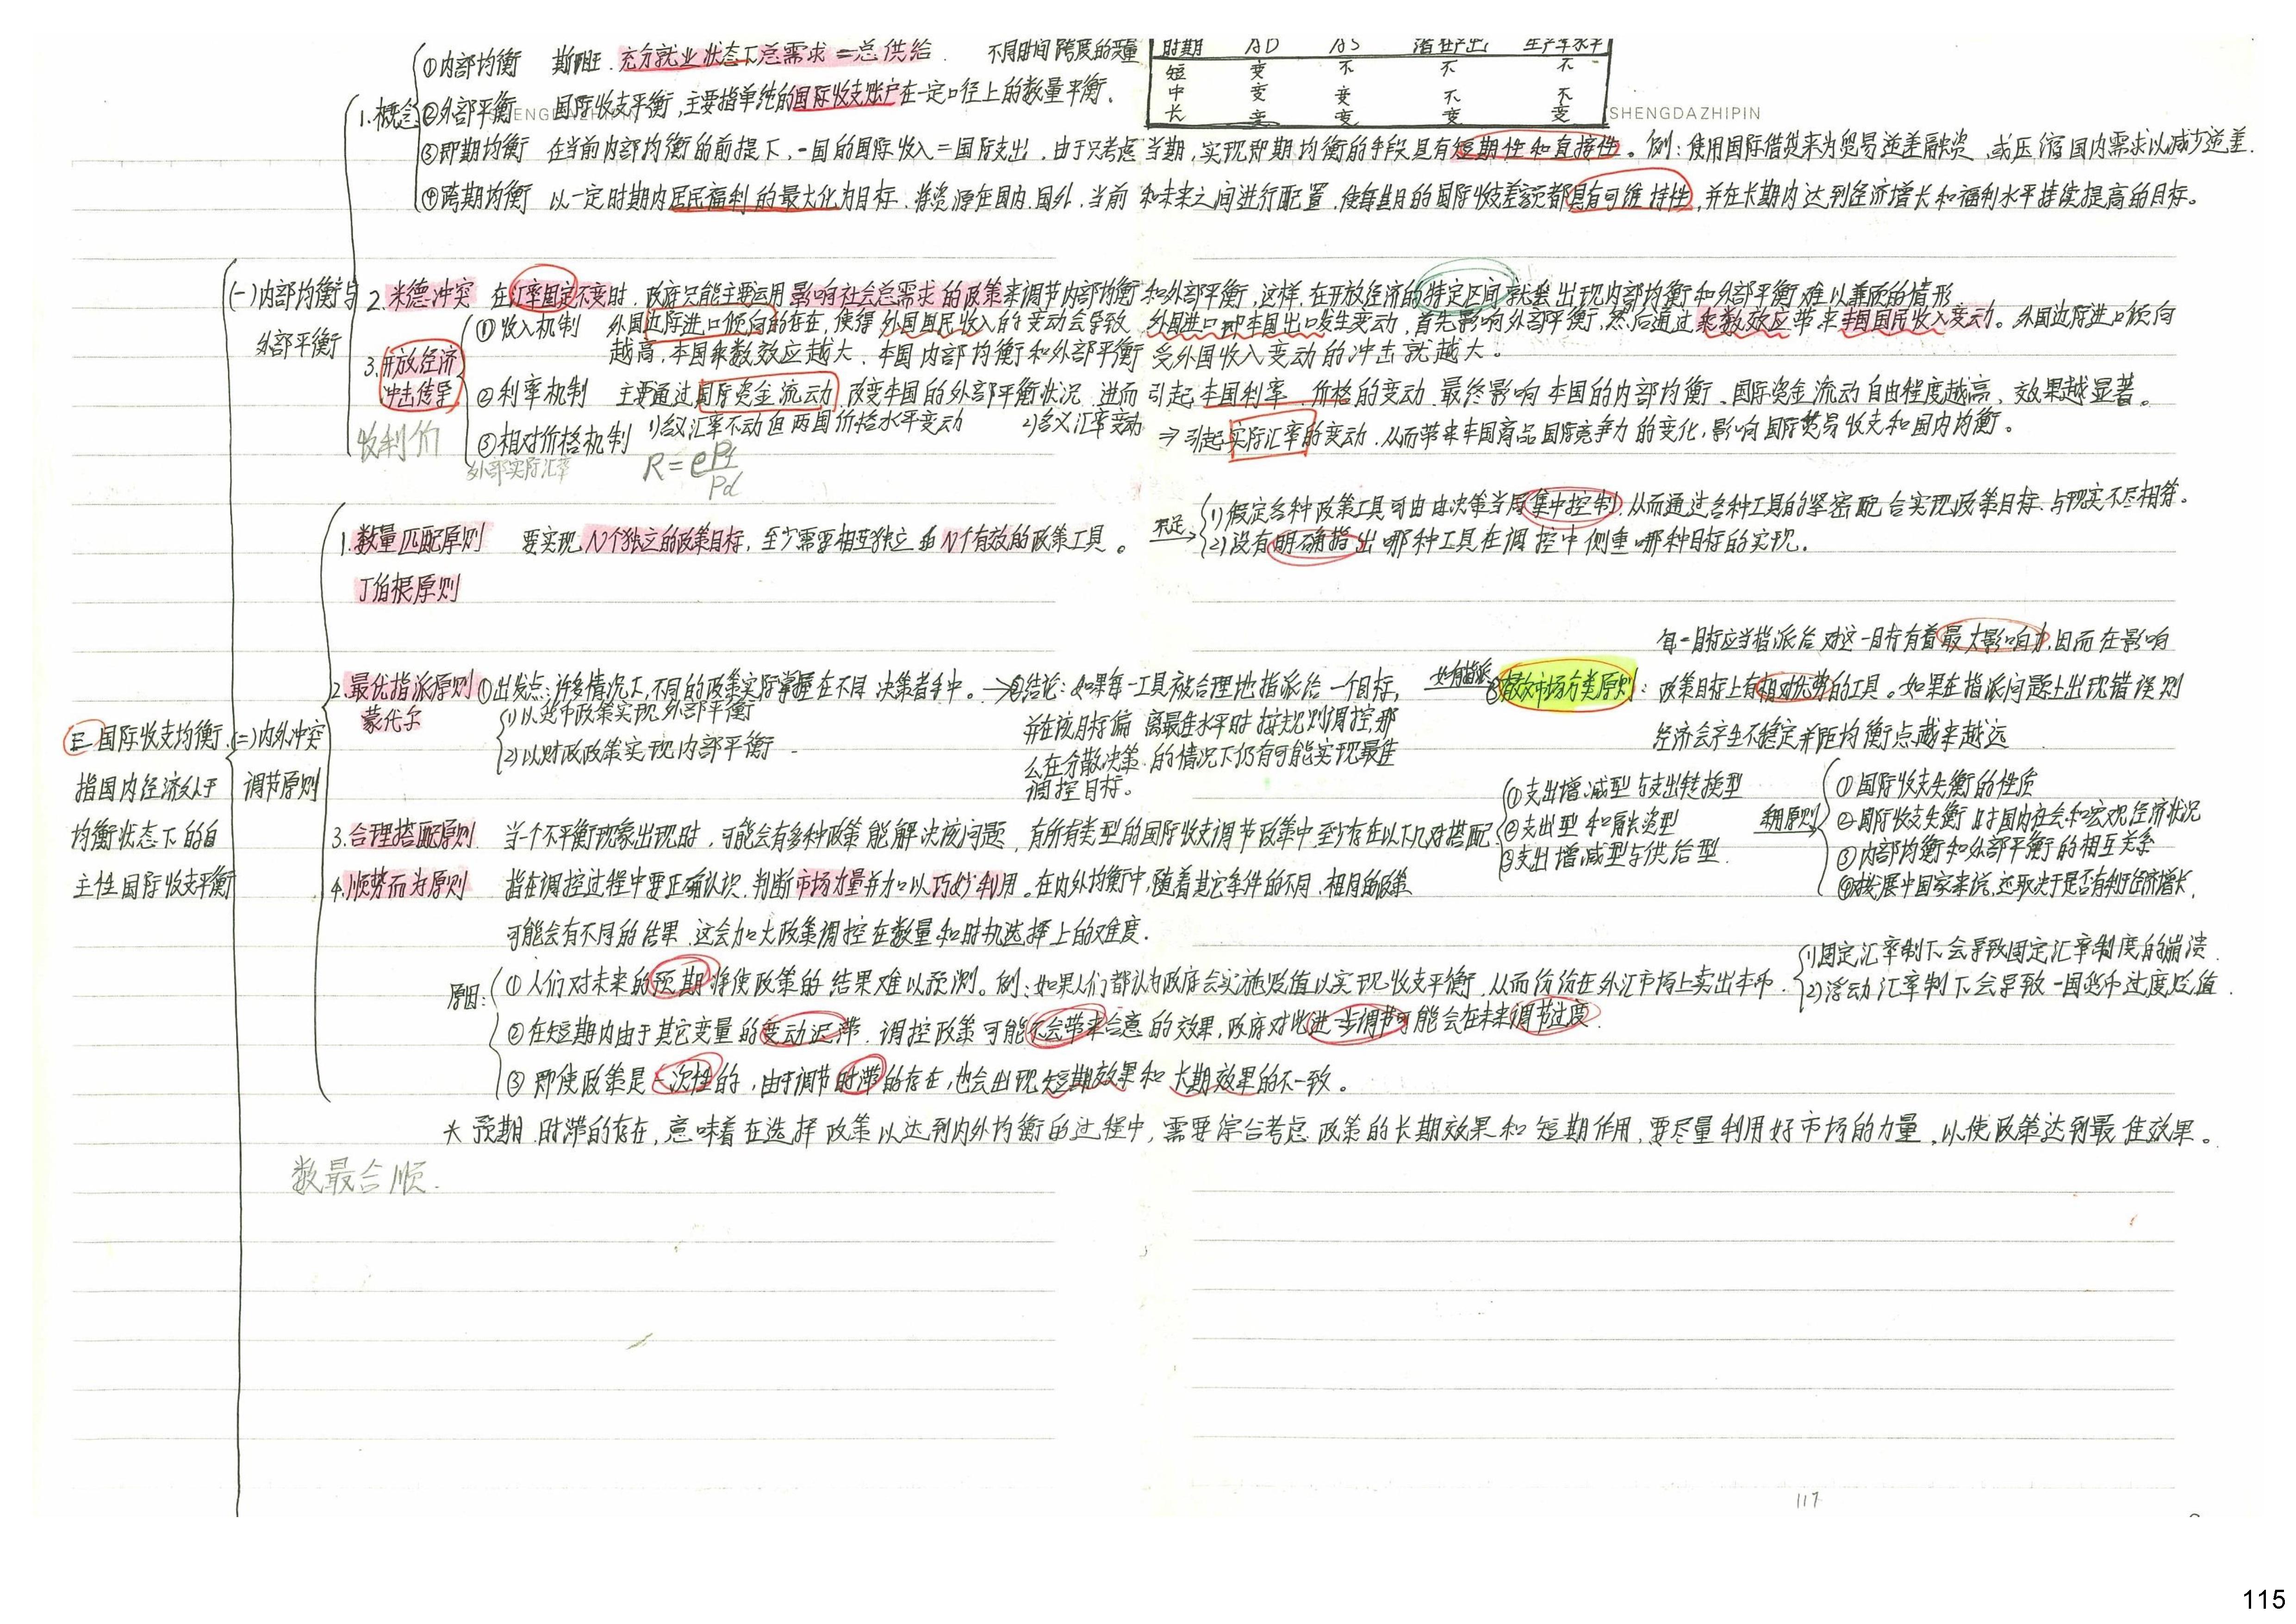 ①内部均衡 斯旺. 充分就业状态下总需求=总供给. 不同时间跨度的变量
时期 AD AS 潜在产出 生产率水平
短 变 不 不 不
中 变 变 不 不
长 变 变 变 变
1.概念 ②外部平衡 国际收支平衡,主要指单纯的国际收支账户在一定口径上的数量平衡.
SHENGDAZHIPIN
③即期均衡 在当前内部均衡的前提下,一国的国际收入=国际支出.由于只考虑当期,实现即期均衡的手段具有短期性和直接性。例:使用国际借贷来为贸易逆差融资,或压缩国内需求以减少逆差.
④跨期均衡 以一定时期内居民福利的最大化为目标.将资源在国内.国外.当前和未来之间进行配置,使每期的国际收支差额都具有可维持性,并在长期内达到经济增长和福利水平持续提高的目标。
(一)内部均衡与
外部平衡
2.米德冲突 在汇率固定不变时.政府只能主要运用影响社会总需求的政策来调节内部均衡和外部平衡,这样.在开放经济的特定区间就会出现内部均衡和外部平衡难以兼顾的情形
3.开放经济
冲击传导
①收入机制 外国边际进口倾向的存在,使得外国国民收入的变动会导致外国进口即本国出口发生变动,首先影响外部平衡,然后通过乘数效应带来本国国民收入变动。外国边际进口倾向
越高,本国乘数效应越大.本国内部均衡和外部平衡受外国收入变动的冲击就越大。
②利率机制 主要通过国际资金流动改变本国的外部平衡状况 进而引起本国利率.价格的变动 最终影响本国的内部均衡.国际资金流动自由程度越高,效果越显著。
收利价
③相对价格机制 1)名义汇率不动但两国价格水平变动 2)名义汇率变动 ⇒引起实际汇率的变动.从而带来本国商品国际竞争力的变化,影响国际贸易收支和国内均衡。
外部实际汇率 R=ePf/Pd
1.数量匹配原则 要实现N个独立的政策目标,至少需要相互独立的N个有效的政策工具。
丁伯根原则
不足 (1)假定各种政策工具可由决策当局集中控制,从而通过各种工具的紧密配合实现政策目标.与现实不尽相符。
(2)没有明确指出哪种工具在调控中侧重哪种目标的实现.
2.最优指派原则
蒙代尔
①出发点:许多情况下,不同的政策实际掌握在不同决策者手中。
(1)以货币政策实现外部平衡
(2)以财政政策实现内部平衡
→②结论:如果每一工具被合理地指派给一个目标,
并在该目标偏离最佳水平时按规则调控,那
么在分散决策的情况下仍有可能实现最佳
调控目标。
如何指派 ③有效市场分类原则:
每一目标应当指派给对这一目标有着最大影响力,因而在影响
政策目标上有相对优势的工具。如果在指派问题上出现错误则
经济会产生不稳定并距均衡点越来越远
三 国际收支均衡.
指国内经济处于
均衡状态下的自
主性国际收支平衡
(二)内外冲突
调节原则
3.合理搭配原则. 当一个不平衡现象出现时,可能会有多种政策能解决该问题,有所有类型的国际收支调节政策中至少存在以下几对搭配
①支出增减型与支出转换型
②支出型和融资型
③支出增减型与供给型.
①国际收支失衡的性质
②国际收支失衡时国内社会和宏观经济状况
③内部均衡和外部平衡的相互关系
④对发展中国家来说,还取决于是否有利于经济增长.
4.顺势而为原则 指在调控过程中要正确认识.判断市场力量并加以巧妙利用。在内外均衡中,随着其它条件的不同.相同的政策
可能会有不同的结果.这会加大政策调控在数量和时机选择上的难度.
原因: ①人们对未来的预期将使政策的结果难以预测。例:如果人们都认为政府会实施贬值以实现收支平衡,从而纷纷在外汇市场上卖出本币.
(1)固定汇率制下会导致固定汇率制度的崩溃.
(2)浮动汇率制下会导致一国货币过度贬值.
②在短期内由于其它变量的变动迟滞.调控政策可能不会带来合意的效果,政府对此进一步调节可能会在未来调节过度.
③即使政策是一次性的,由于调节时滞的存在,也会出现短期效果和长期效果的不一致。
大 预期.时滞的存在,意味着在选择政策以达到内外均衡的过程中,需要综合考虑政策的长期效果和短期作用,要尽量利用好市场的力量,以使政策达到最佳效果。
数最合顺.
117
115